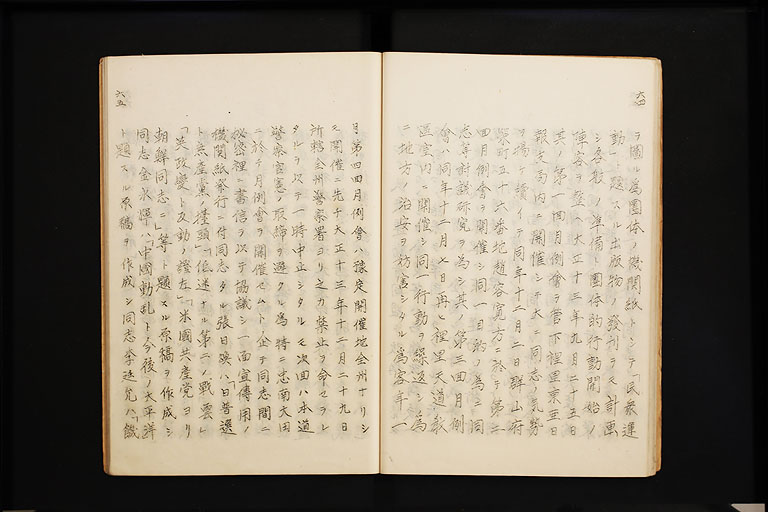 六四
ヲ圖ル爲團体ノ機關紙トシテ「民衆運
動」ト題スル出版物ノ發刊ヲモ計画
シ各般ノ準備ト團体的行動開始ノ
陣容ヲ整ヘ大正十三年九月二十五日
其ノ第一四月例會ヲ管下裡里東亜日
報支局内ニ開催シテ大ニ同志ノ気勢
ヲ揚ケ續イテ同年十二月二日群山府
榮町五十六番地趙容寛方ニ於テ第二
四月例會ヲ開催シ同一目的ノ爲ニ同
志等討議研究ヲ為シ其ノ第三四月例
會ハ同年十二月八日再ヒ裡里天道教
區室内ニ開催シ同一行動ヲ繰返シ為
ニ地方ノ治安ヲ妨害シタル爲客年一
六五
月第四四月例會ハ豫定開催地全州ナリシ
ヲ開催ニ先チ大正十三年十二月二十九日
所轄全州警察署ヨリ之カ禁止ヲ命セラレ
タルヲ以テ一時中止シタルモ次回ハ本道
警察官憲ノ取締ヲ避クル爲特ニ忠南大田
ニ於テ月例會ヲ開催セムト企テ同志間ニ
秘密裡ニ書信ヲ以テ協議シ一面宣傳用ノ
機関紙発行ニ付同志タル張日煥ハ「日普選
ト無産黨ノ擡頭」「低迷ナル第二ノ戰雲」
「英政變ト反動ノ證左」「米國共産党ヨリ
朝鮮同志ニ」等ト題スル原稿ヲ作成シ
同志金永輝ハ「中國動乱ト今後ノ太平洋
ト題スル原稿ヲ作成シ同志李廷允ハ「餓